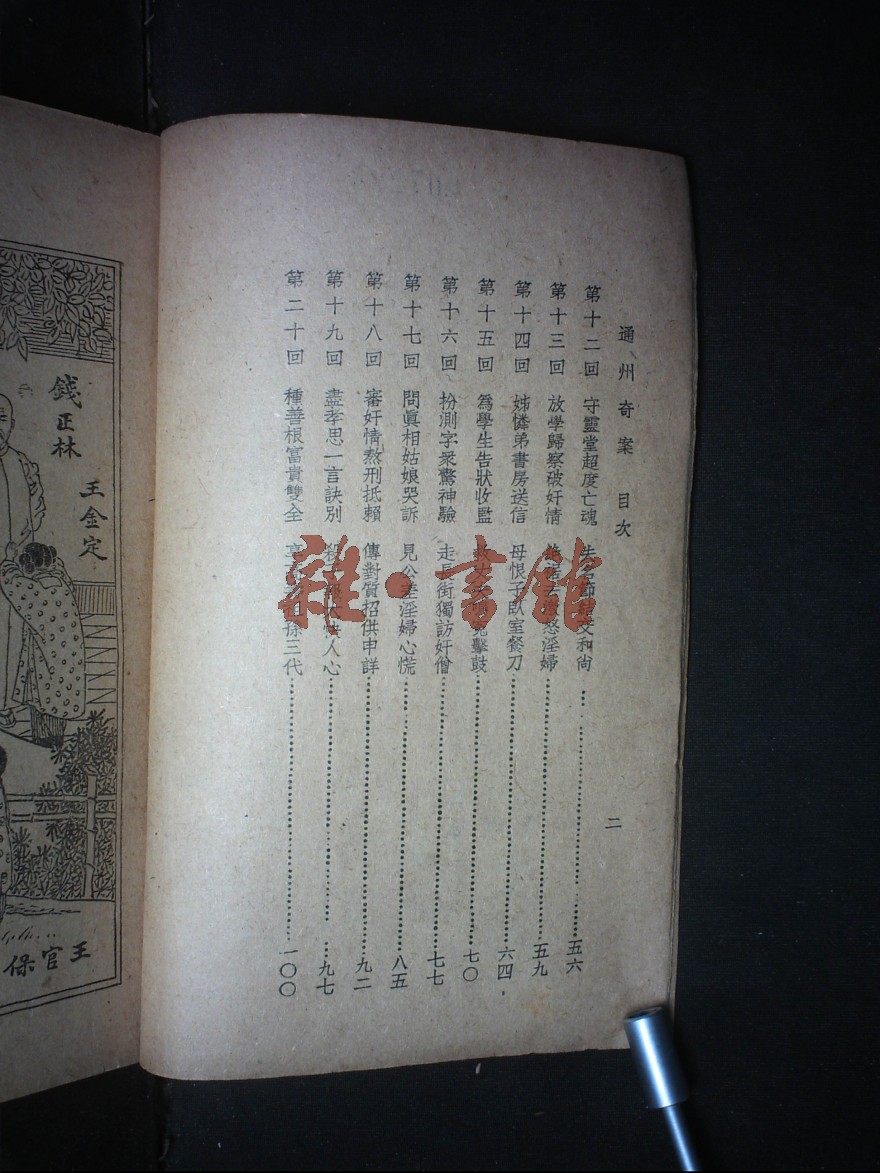 通州奇案 目次
二
第十二回 守靈堂超度亡魂 失 節 交和尚 五六
第十三回 放學歸察破奸情 怒淫婦 五九
第十四回 姊憐弟書房送信 母恨子臥室餐刀 六四
第十五回 為學生告狀收監 救 擊鼓 七〇
第十六回 扮測字眾驚神驗 走長街獨訪奸僧 七七
第十七回 問眞相姑娘哭訴 見公差淫婦心慌 八五
第十八回 審奸情熬刑抵賴 傳對質招供申詳 九二
第十九回 盡孝思一言訣別 殺 大快人心 九七
第二十回 種善根富貴雙全 享 孫三代 一〇〇
錢正林
王金定
王官保
雜·書館